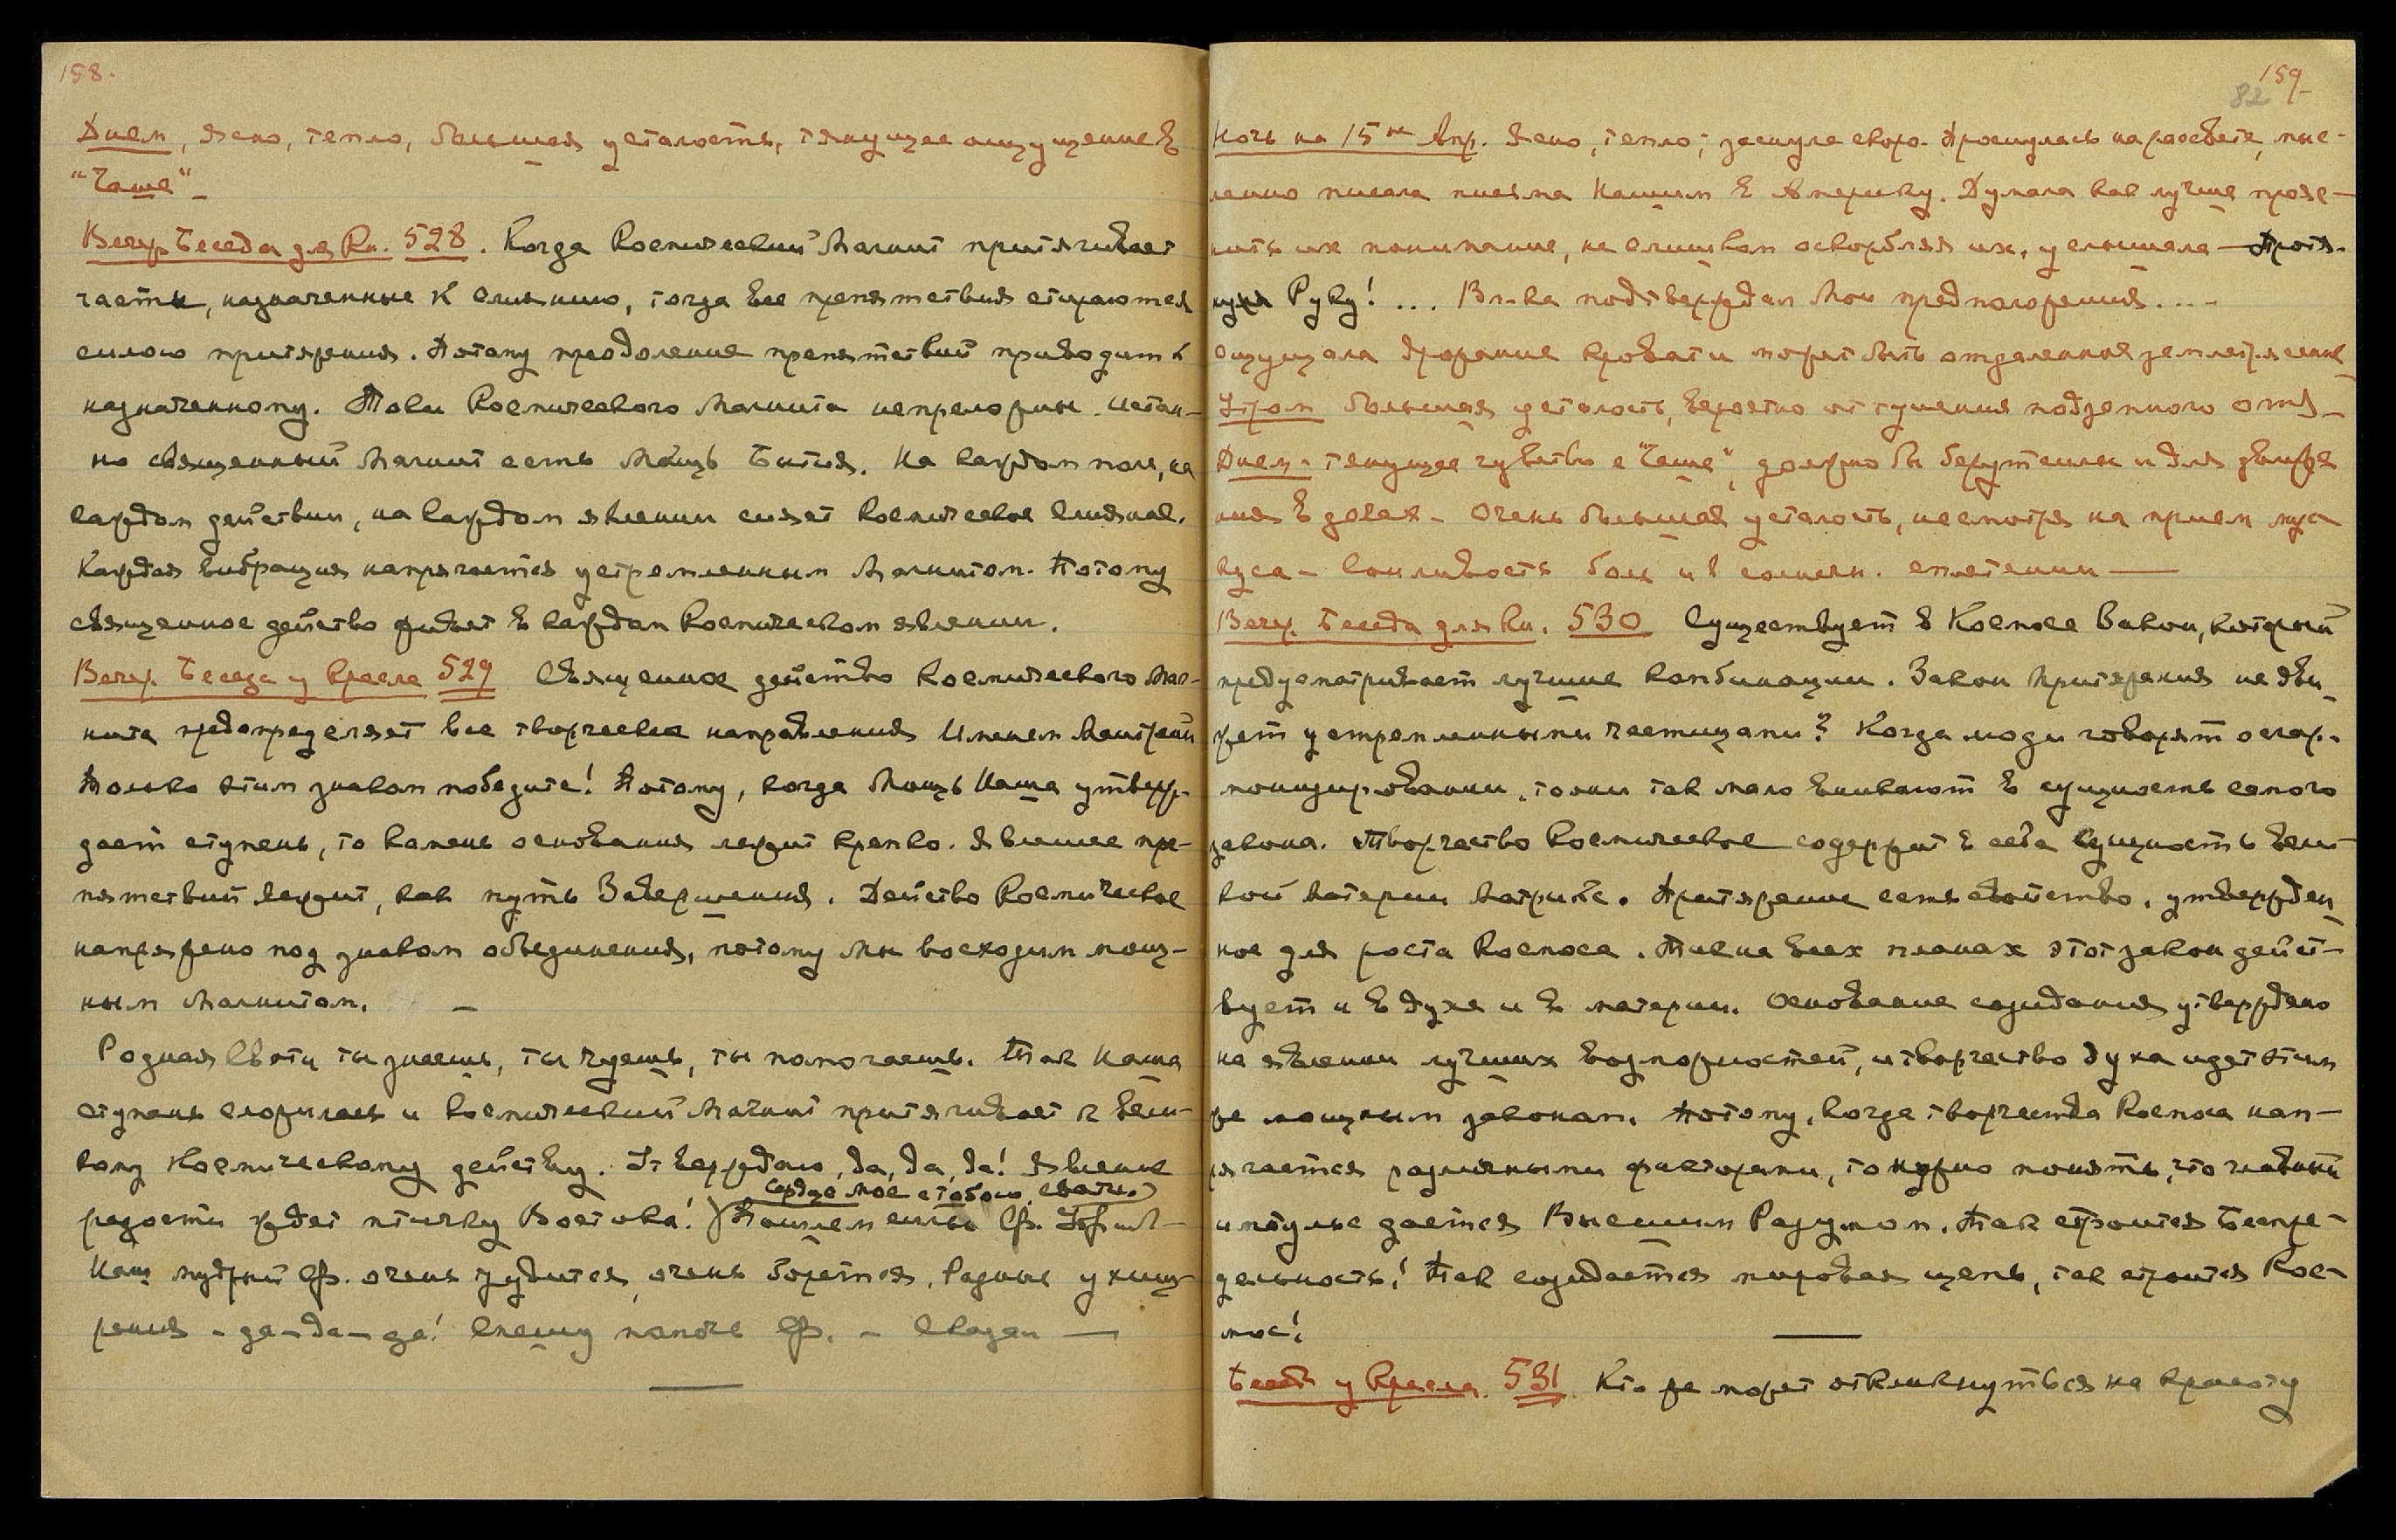 158.
Днем, Ясно, тепло, большая усталость, тянущее ощущение в
"Чаше" –
Вечер. Беседа для Кн. 528. Когда Космический Магнит притягивает
части, назначенные к слиянию, тогда все препятствия стираются
силою притяжения. Потому преодоление препятствий приводит к
назначенному. Токи Космического Магнита непреложны. Истин-
но священный Магнит есть Мощь Бытия. На каждом поле, на
каждом действии, на каждом явлении сияет Космическое Слияние.
Каждая вибрация напрягается устремленным Магнитом. Потому
священное действо живет в каждом Космическом явлении.
Вечер. Беседа у Кресла 529 Священное действо Космического Маг-
нита предопределяет все творческие направления Именем Майтрейи
Только этим знаком победите! Потому, когда Мощь Наша утверж-
дает ступень, то камень основания лежит крепко. Явление пре-
пятствий лежит, как путь Завершения. Действо Космическое
напряжено под знаком объединения, потому мы восходим мощ-
ным Магнитом. –
Родная Свати ты знаешь, ты чуешь, ты помогаешь. Так Наша
ступень сложилась и Космический Магнит притягивает к вели-
кому Космическому действу. Утверждаю, да, да, да! Явление
сердце мое с тобою, свати.)
радости ждет птичку Востока! Пошлем силы Ф.
Наш мудрый Ф. очень трудится, очень борется. Родные ухищ-
рения – да – да – да! Спешу помочь Ф. – Сказал —
159
82
Ночь на 15ое Апр. Ясно, тепло; заснула скоро. Проснулась на рассвете, мыс-
ленно писала письма Нашим в Америку. Думала как лучше прояс-
нить их понимание, не слишком оскорбляя их, услышала — Протя-
нула Руку! ... Вл-ка подтвердил Мои предположения....
Ощущала дрожание кровати может быть отдаленное землетрясение
Утром большая усталость, вероятно от тушения подземного огня –
Днем – тянущее чувство в "Чаше", должно бы
ния в делах – Очень большая усталость, несмотря на прием мус-
куса – Сонливость боль и в солнечн. сплетении —
Вечер. Беседа для Кн. 530 Существует в Космосе Закон, который
предусматривает лучшие комбинации. Закон притяжения не дви-
жет устремленными частицами? Когда люди говорят о гар-
монизировании, то они так мало вникают в сущность самого
закона. Творчество Космическое содержит в себе сущность вели-
кой Материи Матрикс. Притяжение есть свойство, утвержден-
ное для роста Космоса. Так на всех планах этот закон дейст-
вует и в духе и в материи. Основание созидания утверждено
на явлении лучших возможностей, и творчество духа идет этим
же мощным законом. Потому, когда творчество Космоса нап-
рягается различными факторами, то нужно понять, что главный
импульс дается Высшим Разумом. Так строится Беспре-
дельность! Так созидается мировая цепь, так строится Кос-
мос!
Беседа у Кресла. 531 Кто же может откликнуться на красоту